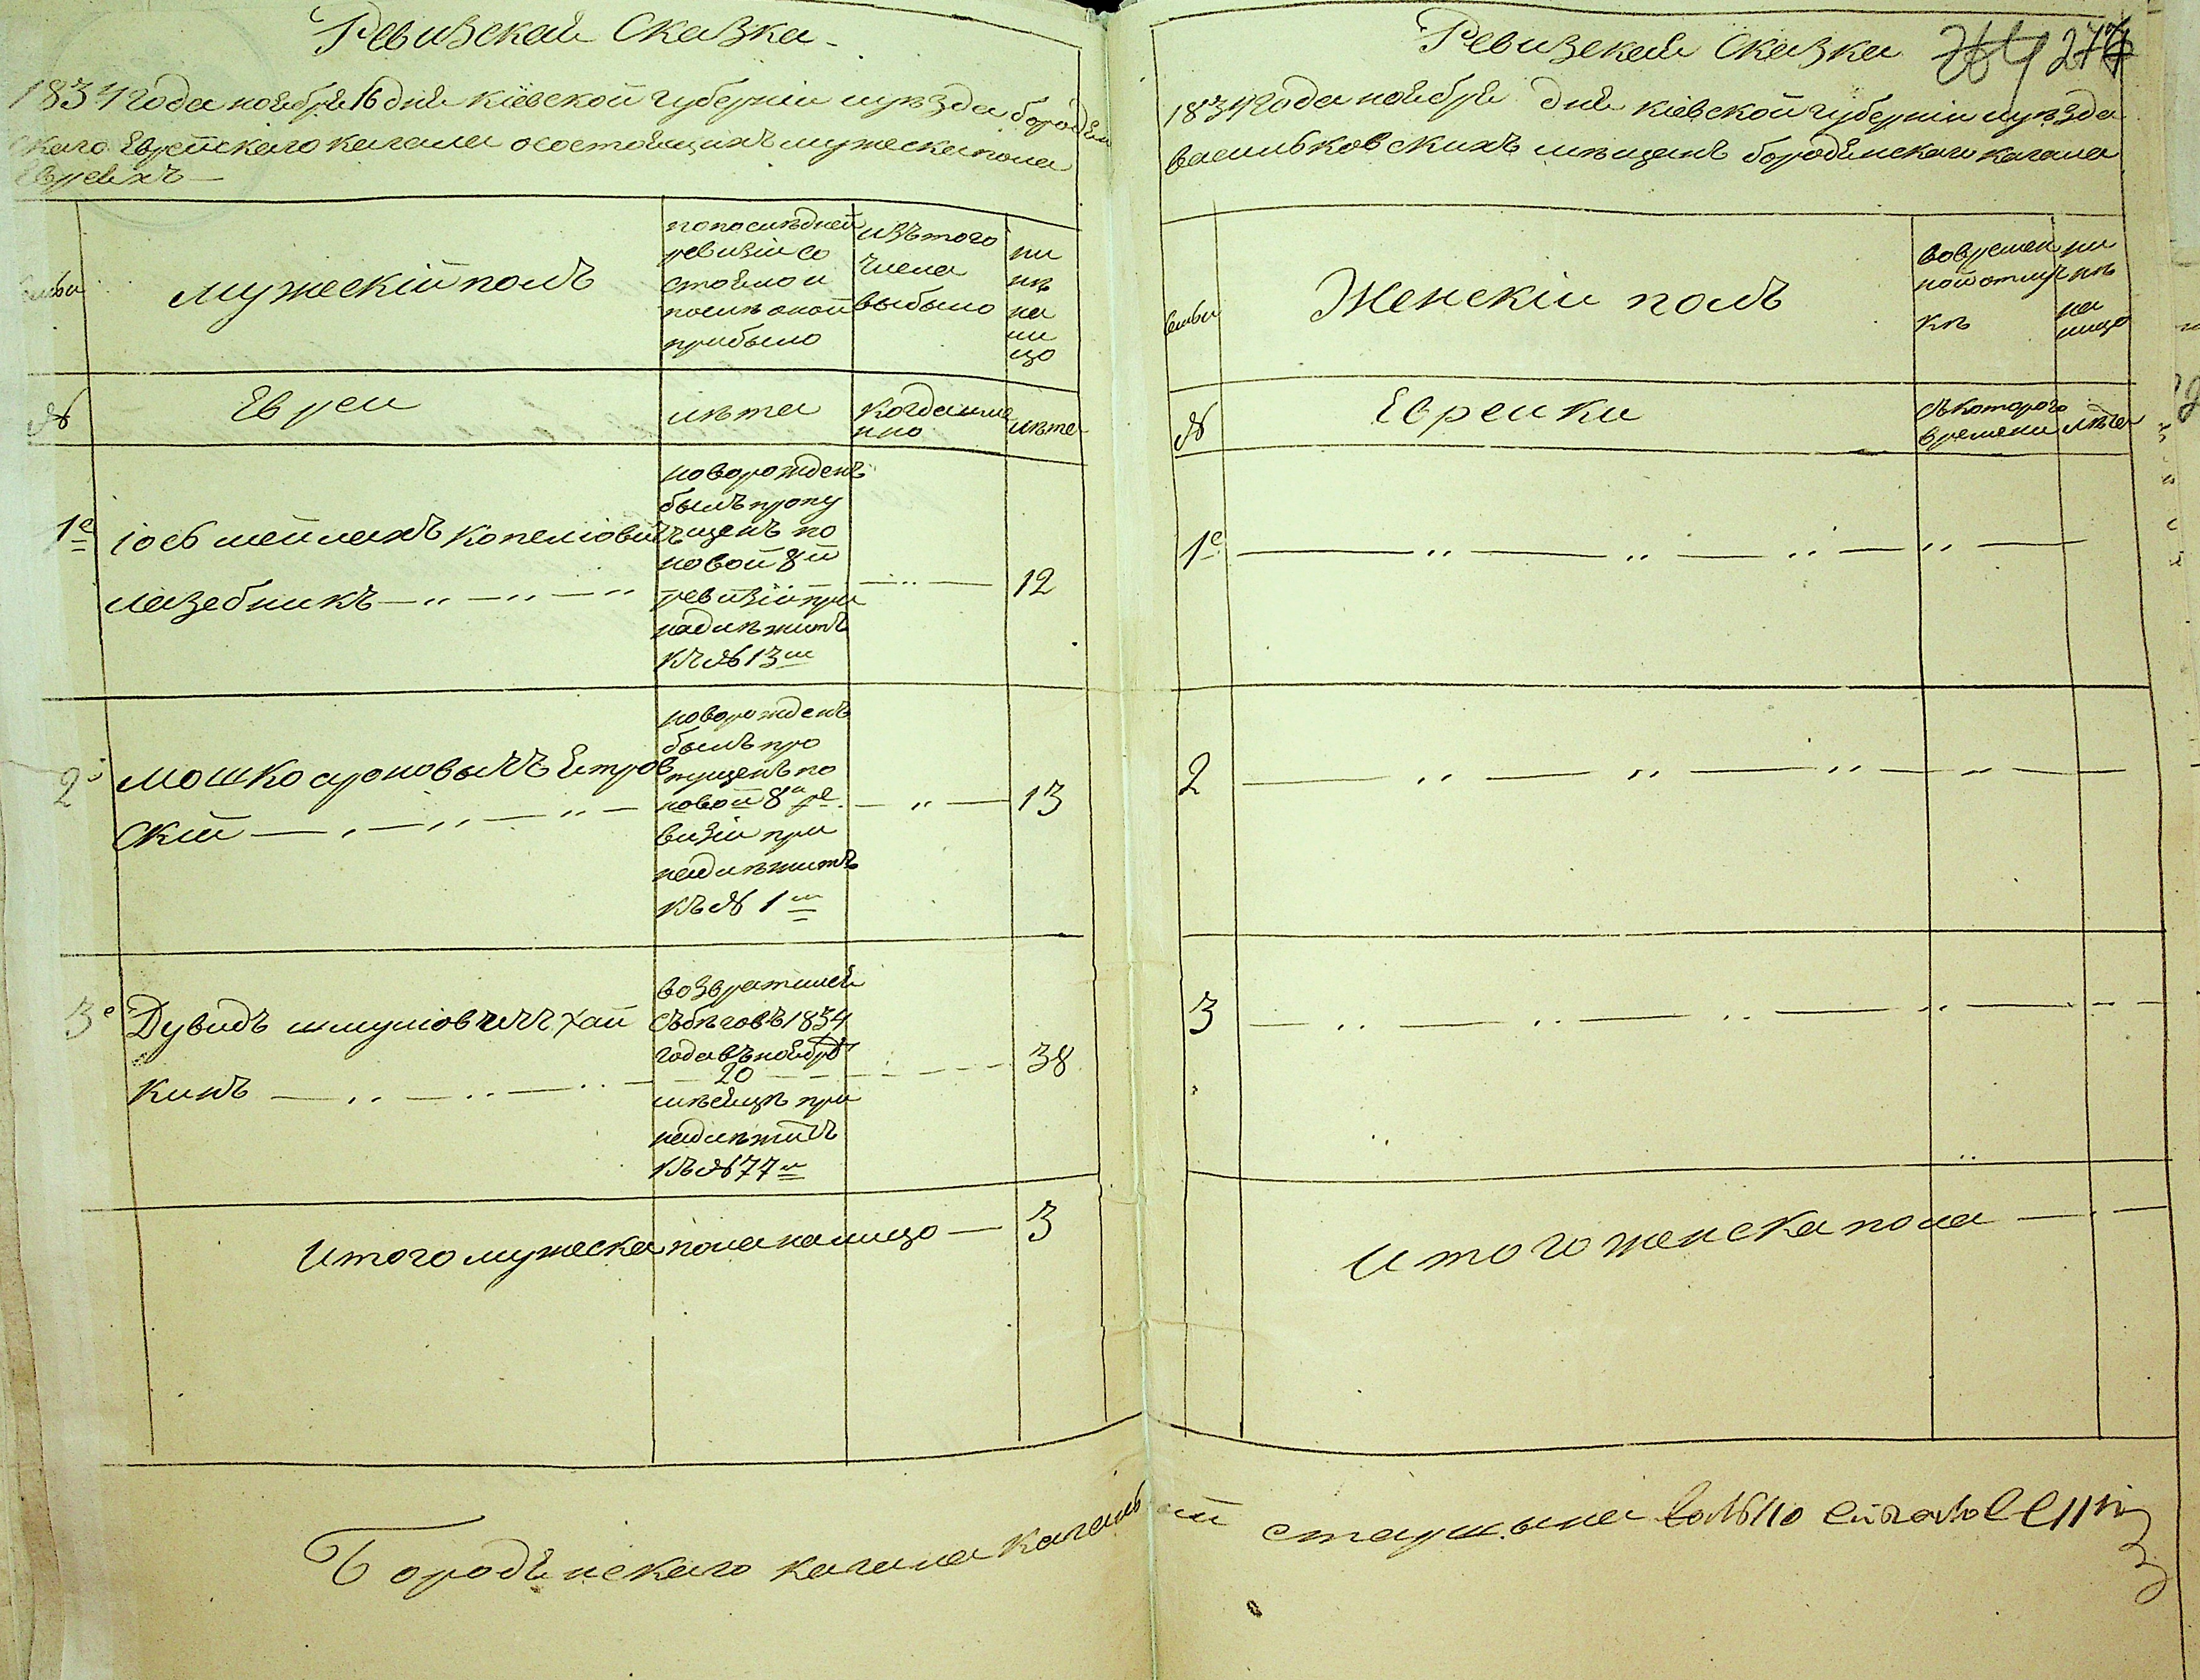 Ревизская Сказка
1834 года ноября 16 дня Кіевской губерніи и уезда бородян
скаго Еврейскаго кагала о состоящихъ мужеска пола
Евреяхъ
Семьи
Мужескій полъ
по последней
ревизіи со
стояло и
после оной
прибыло
изъ того
числа
выбыло
ны
не
на
ли
цо
№
Евреи
лета
когда имен
нно
лета
1е
Іось мейлахъ Копеліовичъ
лазебникъ
новорожденъ
былъ пропу
щенъ по
новой 8й
ревизіи при
надлежитъ
къ № 13м
12
2е
Мошко ароновычъ Бтров
скій
новорожденъ
былъ про
пущенъ по
новой 8й ре
визіи при
надлежитъ
къ № 1м
13
3е
Дувидъ шмуліовичъ Хай
кинъ
возвратился
съ бегов 1834
года въ ноябре
20
месяце при
надлежитъ
къ № 77м
38
Итого мужеска пола налицо — 3
Ревизская Сказка
277
1834 года ноября дня Кіевской губерніи и уезда
васильковскихъ мещанъ бородянскаго кагала
Семьи
Женскій полъ
во времен
ной отлуч
ке
ны
не
на
лицо
№
Еврейки
съ котораго
времени
лета
1е
2
3
Итого женска пола
Бородянскаго кагала кагальный старшына